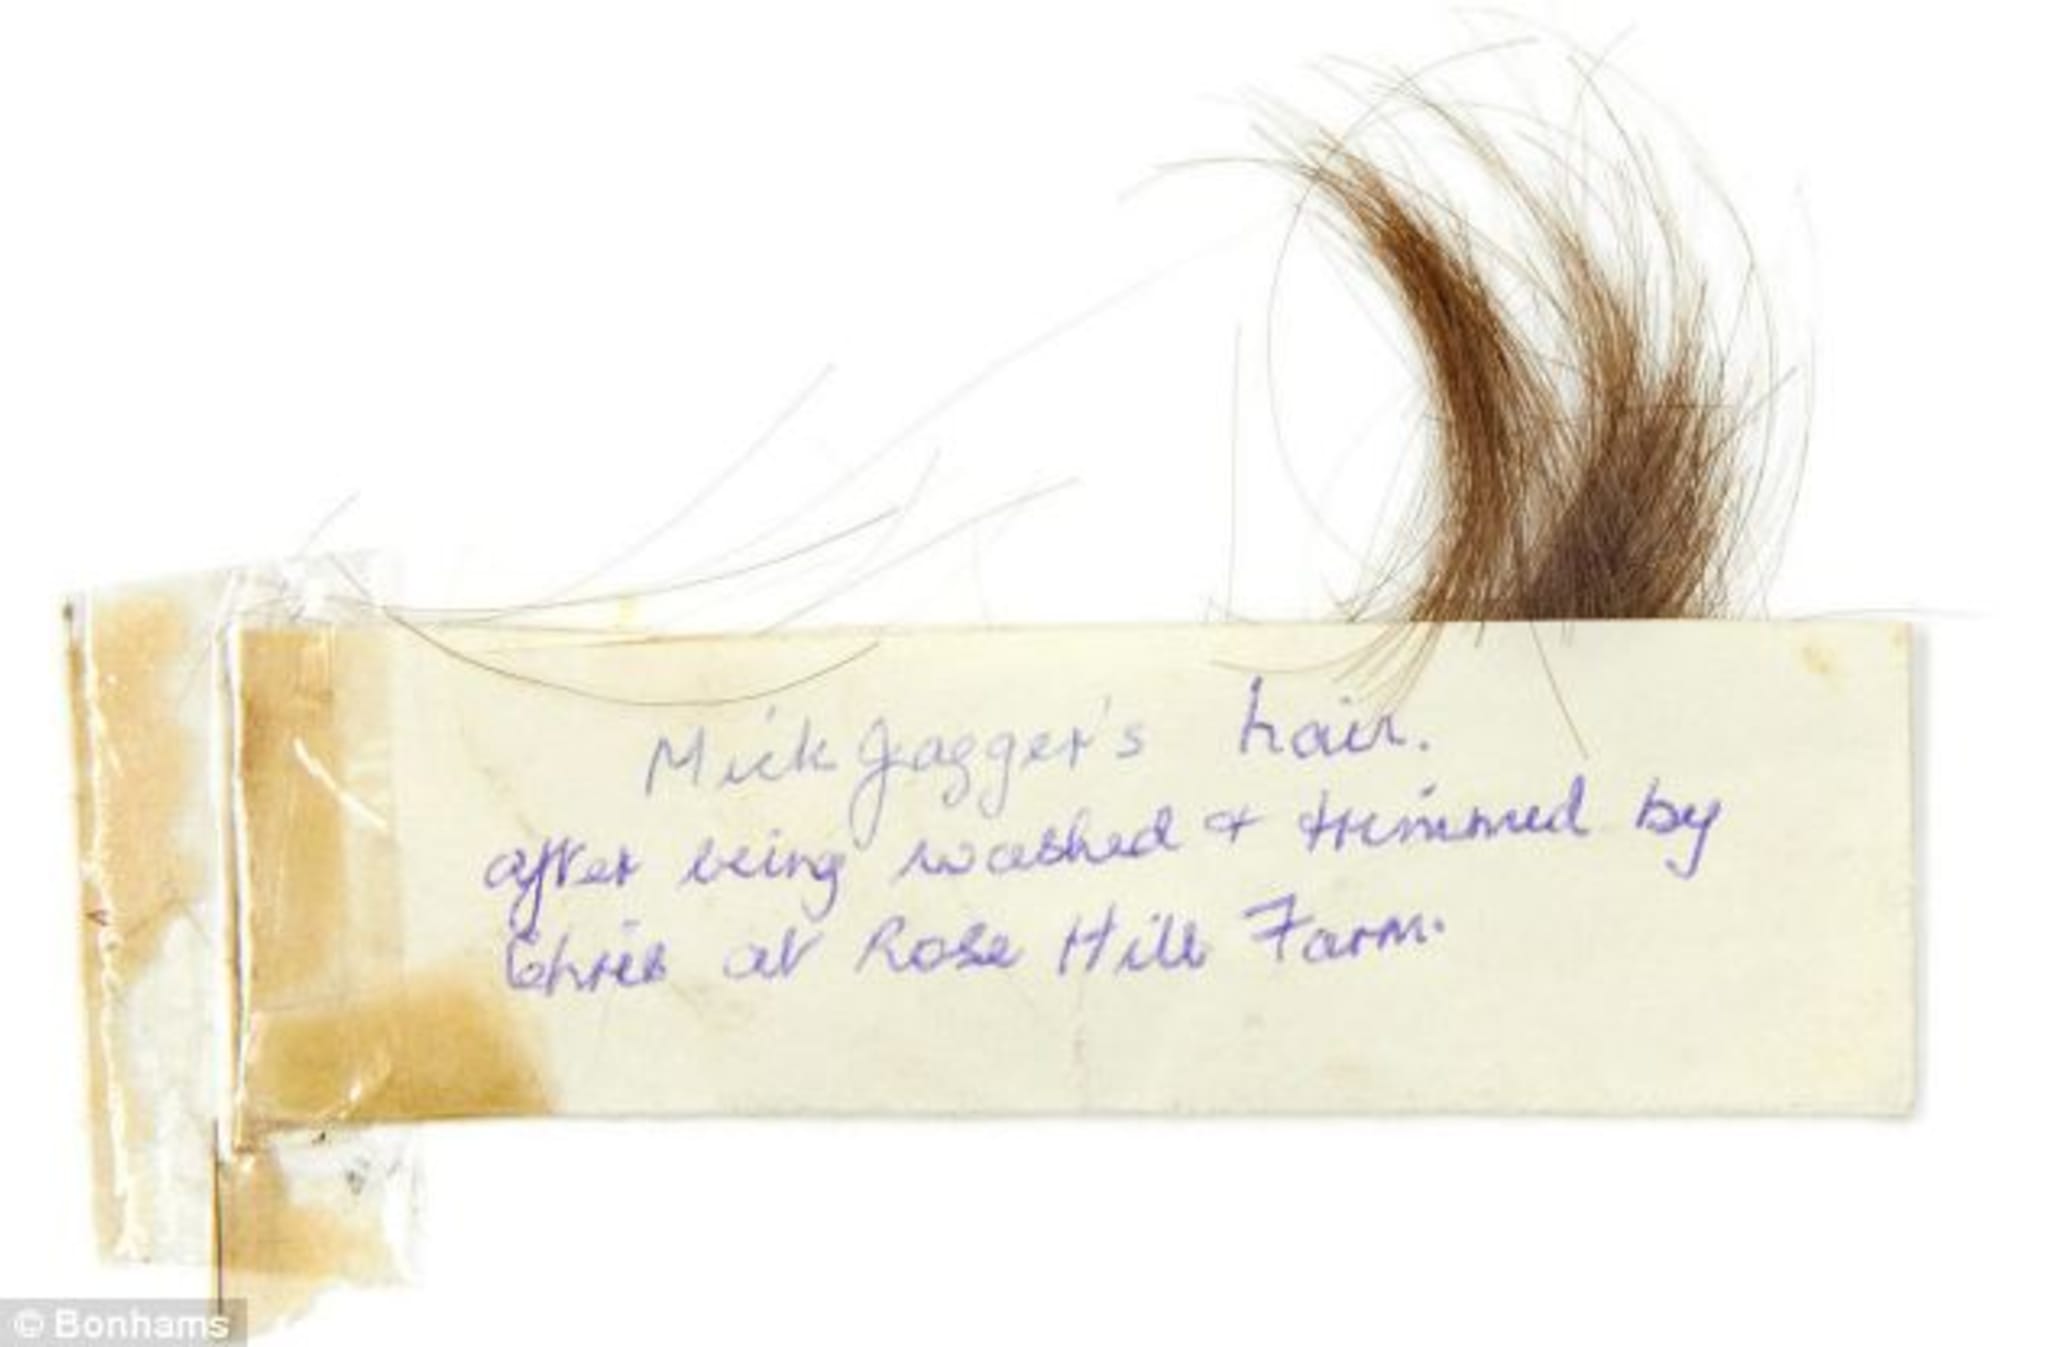 Mick Jagger's hair.
after being washed + trimmed by
Chris at Rose Hill Farm.
© Bonhams